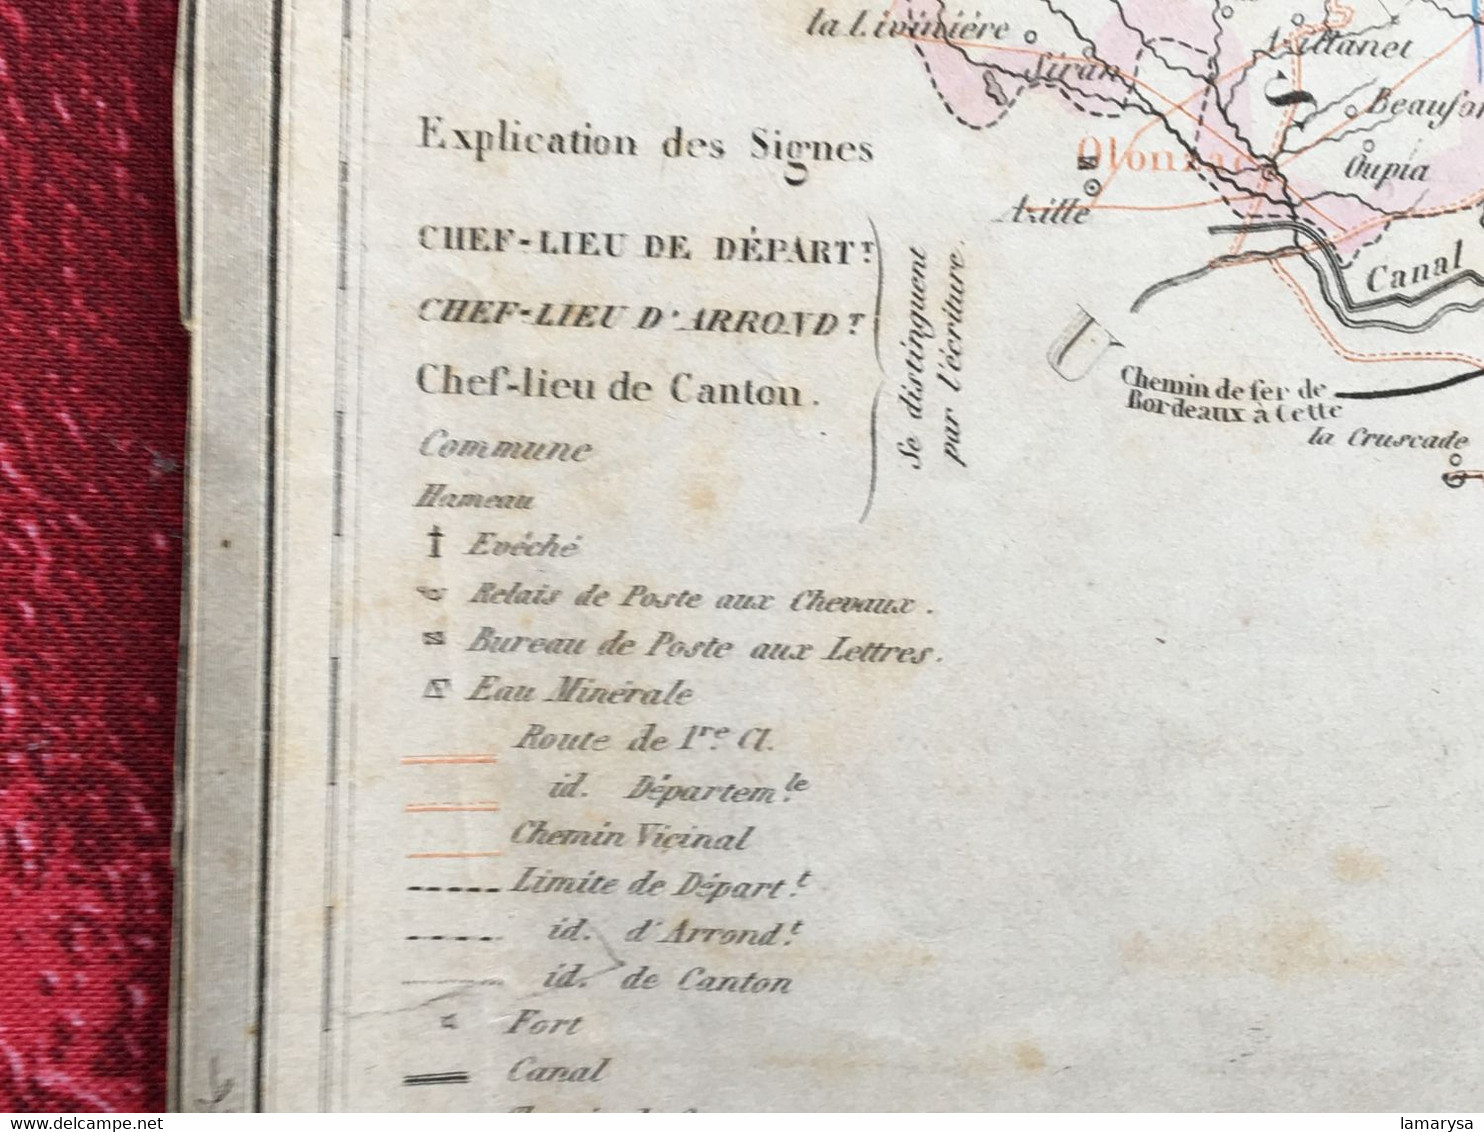 la Livinière
Siran
Beaufor
Olonzac
Oupia
Explication des Signes
CHEF-LIEU DE DÉPART.T
CHEF-LIEU D'ARROND.T
Chef-lieu de Canton.
Commune
Hameau
Se distinguent
par l'écriture.
Canal
Chemin de fer de
Bordeaux à Cette
la Cruscade
Evéché
Relais de Poste aux Chevaux.
Bureau de Poste aux Lettres.
Eau Minérale
Route de 1re Cl.
id. Départem.le
Chemin Vicinal
Limite de Départ.t
id. d'Arrond.t
id. de Canton
Fort
Canal
delcampe.net
lamarysa